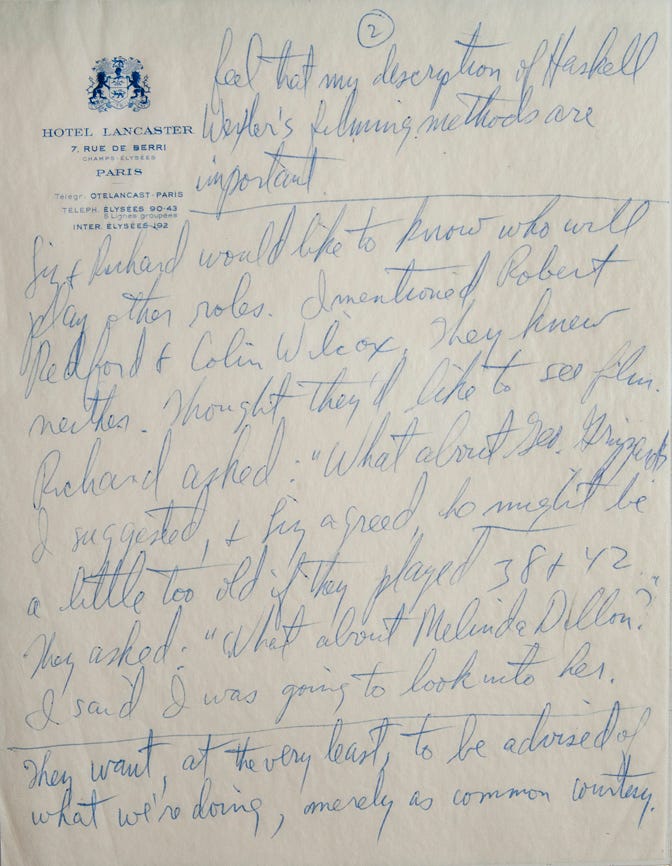 2
feel that my description of Haskell
HOTEL LANCASTER
7, RUE DE BERRI
CHAMPS-ÉLYSÉES
PARIS
Télégr. OTELANCAST-PARIS
TÉLÉPH. ÉLYSÉES 90-43
5 Lignes groupées
INTER. ÉLYSÉES 192
Wexler's filming methods are
important.
Liz & Richard would like to know who will
play other roles. I mentioned Robert
Redford & Colin Wilcox. They knew
neither. Thought they'd like to see film.
Richard asked: "What about Geo. Grizzard
I suggested, & Liz agreed, he might be
a little too old if they played 38 & 42..
They asked: "What about Melinda Dillon?
I said I was going to look into her.
They want, at the very least, to be advised of
what we're doing, merely as common courtesy.